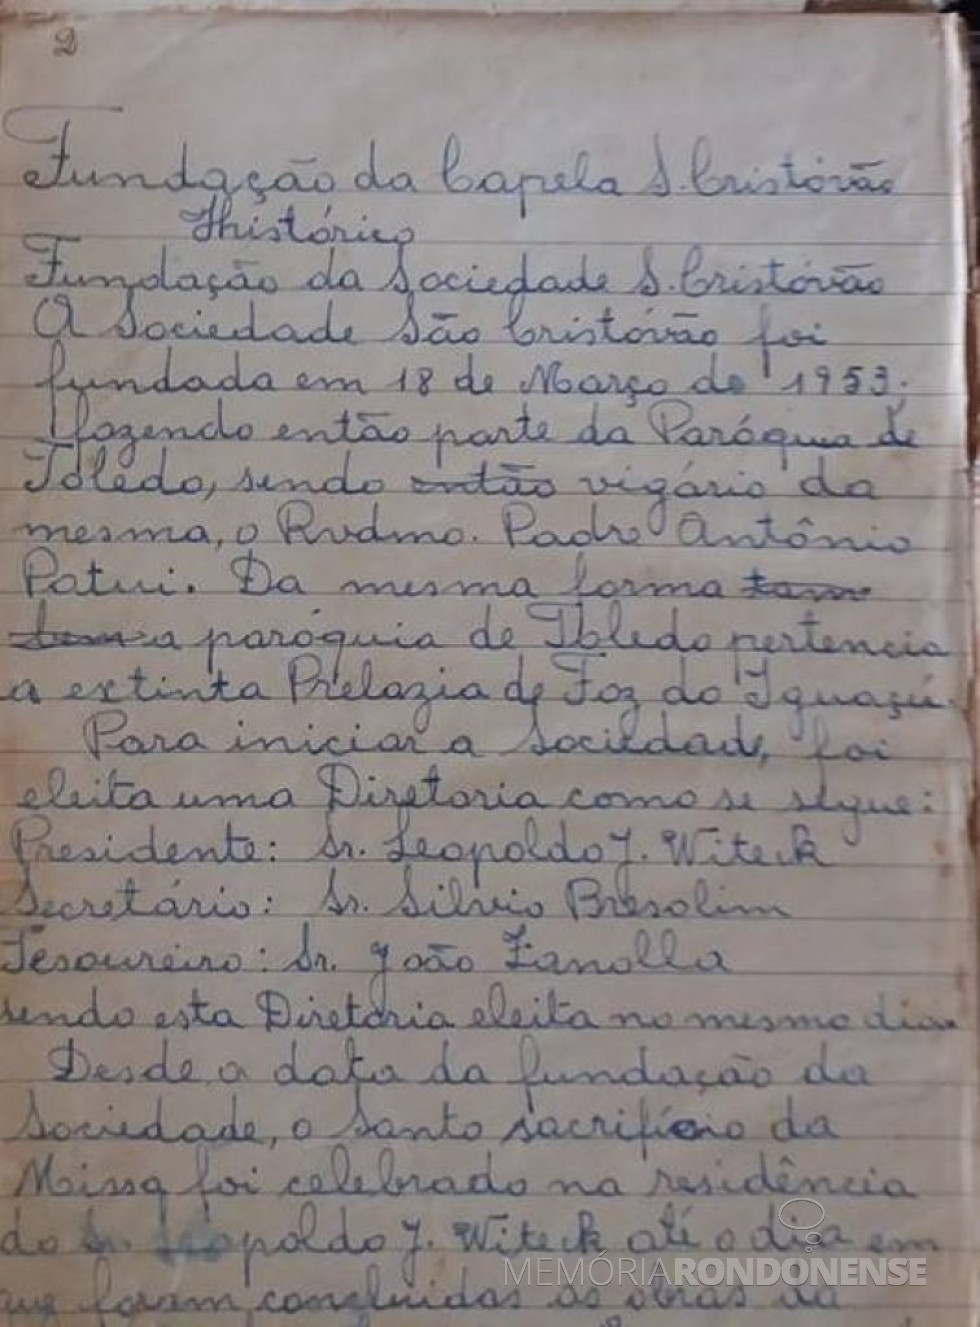 2
Fundação da Capela S. Cristóvão
Hhistórico
Fundação da Sociedade S. Cristóvão
A Sociedade São Cristóvão foi
fundada em 18 de Março de 1953,
fazendo então parte da Paróquia de
Toledo, sendo então vigário da
mesma, o Rvdmo. Padre Antônio
Patui. Da mesma forma tam
bem a paróquia de Toledo pertencia
a extinta Prelazia de Foz do Iguaçú.
Para iniciar a Sociedade, foi
eleita uma Diretoria como se segue:
Presidente: Sr. Leopoldo J. Witeck
Secretário: Sr. Silvio Bresolim
Tesoureiro: Sr. João Zanolla
sendo esta Diretoria eleita no mesmo dia.
Desde a data da fundação da
Sociedade, o Santo sacrifício da
Missa foi celebrado na residência
do Sr. Leopoldo J. Witeck até o dia em
que foram concluidas as obras da
MEMÓRIARONDONENSE